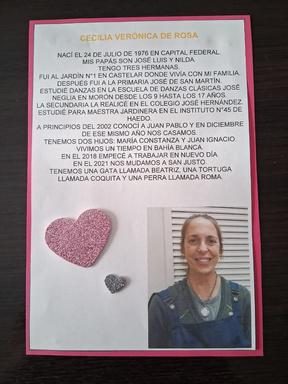 CECILIA VERÓNICA DE ROSA
NACÍ EL 24 DE JULIO DE 1976 EN CAPITAL FEDERAL.
MIS PAPÁS SON JOSÉ LUIS Y NILDA.
TENGO TRES HERMANAS.
FUI AL JARDÍN N°1 EN CASTELAR DONDE VIVÍA CON MI FAMILIA.
DESPUÉS FUI A LA PRIMARIA JOSÉ DE SAN MARTÍN.
ESTUDIÉ DANZAS EN LA ESCUELA DE DANZAS CLÁSICAS JOSÉ
NEGLIA EN MORÓN DESDE LOS 9 HASTA LOS 17 AÑOS.
LA SECUNDARIA LA REALICÉ EN EL COLEGIO JOSÉ HERNÁNDEZ.
ESTUDIÉ PARA MAESTRA JARDINERA EN EL INSTITUTO N°45 DE
HAEDO.
A PRINCIPIOS DEL 2002 CONOCÍ A JUAN PABLO Y EN DICIEMBRE
DE ESE MISMO AÑO NOS CASAMOS.
TENEMOS DOS HIJOS: MARÍA CONSTANZA Y JUAN IGNACIO.
VIVIMOS UN TIEMPO EN BAHÍA BLANCA.
EN EL 2018 EMPECÉ A TRABAJAR EN NUEVO DÍA.
EN EL 2021 NOS MUDAMOS A SAN JUSTO.
TENEMOS UNA GATA LLAMADA BEATRIZ, UNA TORTUGA
LLAMADA COQUITA Y UNA PERRA LLAMADA ROMA.